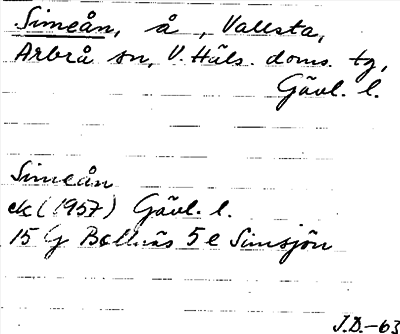 Simeån, å, Vallsta,
Arbrå sn, V. Häls. doms. tg,
Gävl. l.
Simeån
ek (1957) Gävl. l.
15 G Bollnäs 5 e Simsjön
J.D.-63